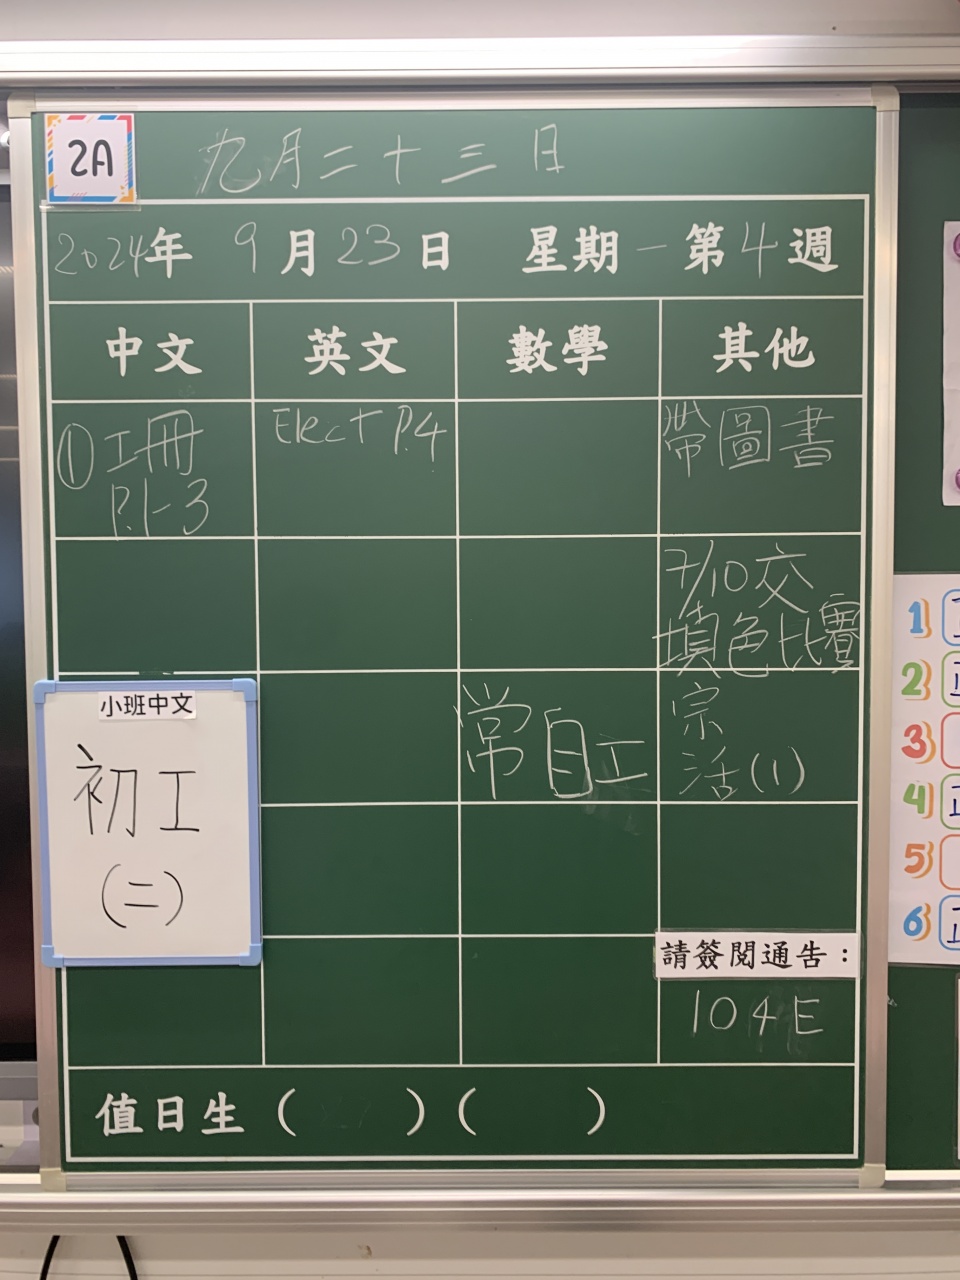 2A
九月二十三日
2024年 9月23日 星期一 第4週
中文 英文 數學 其他
①工冊
P.1-3
Elect P.4
帶圖書
7/10交
填色比賽
小班中文
初工
(二)
常自工
宗
活(1)
請簽閱通告：
104E
值日生（ ）（ ）
1
2
3
4
5
6